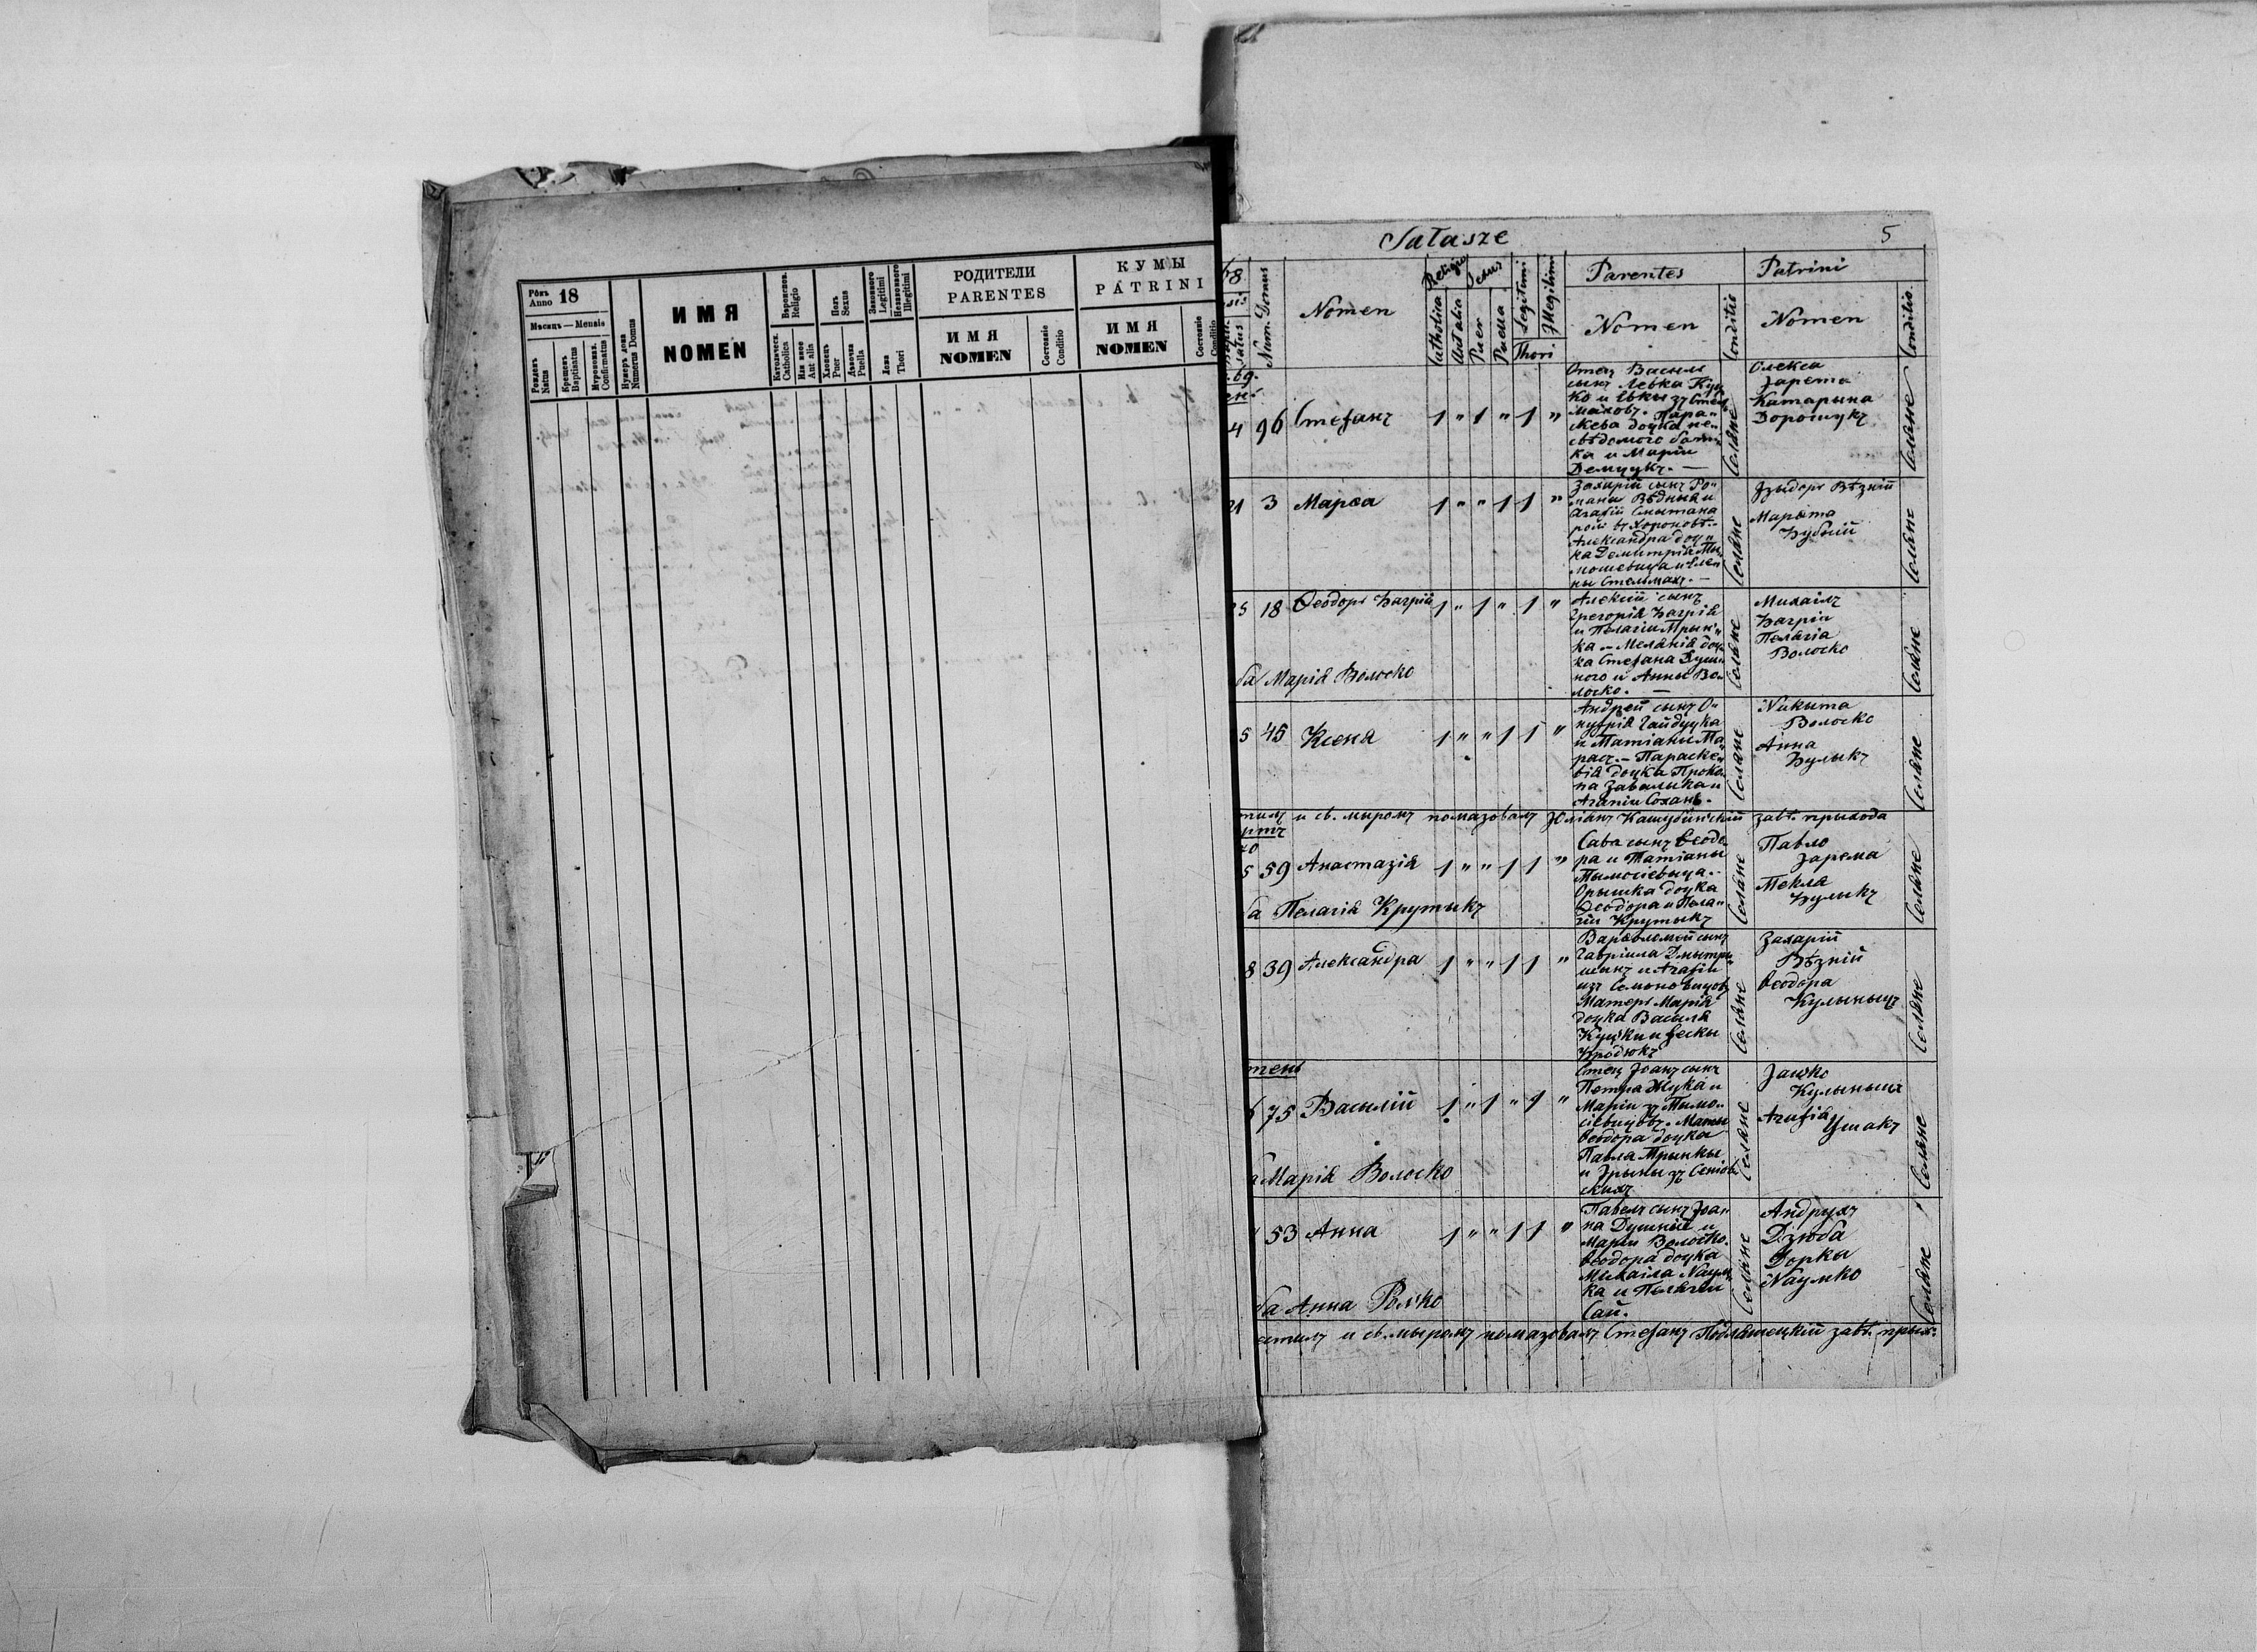 Рôкъ Anno 18
Мѣсяць — Mensis
Рожденъ Natus
Крещенъ Baptisatus
Мѵропомаз. Confirmatus
Нумеръ дома Numerus Domus
ИМЯ
NOMEN
Вѣроисповѣд. Religio
Католическ. Catholica
Или иное Aut Alia
Полъ Sexus
Хлопецъ Puer
Дѣвочка Puella
Законного Legitimi
Незаконного Illegitimi
Ложа Thori
РОДИТЕЛИ
PARENTES
ИМЯ
NOMEN
Состояніе Conditio
КУМЫ
PATRINI
ИМЯ
NOMEN
Состояніе Conditio
Sałasze
5
Num. Domus
Nomen
Religio
Catholica
Aut alia
Sexus
Puer
Puella
Legitimi
Illegitimi
Thori
Parentes
Nomen
Conditio
Patrini
Nomen
Conditio
4 96 Стефанъ 1 " 1 " 1 "
Отец Василь
сынъ Левка Куц
ко и Евки зъ Стель
маховъ. Пара"
скева доцка не"
свѣдомого бать"
ка и Маріи
Демчукъ. —
Селяне
Олекса
Зарема
Катарына
Дорошукъ
Селяне
21 3 Марѳа 1 " " 1 1 "
Захарій сынъ Ро"
мана Вѣзныя и
Агафіи Смытана
Александра доц"
ка Демитрія Ты"
мошевича и Елен
ны Стельмахъ. —
Селяне
Изыдоръ Вѣзній
Марыта
Бубній
Селяне
25 18 Ѳеодоръ Багрій 1 " 1 " 1 "
Алексій сынъ
Григорія Багрія
и Пелагіи Мрын"
ка — Меланія доц"
ка Стефана Душ"
ного и Анны Во"
лоско. —
Селяне
Михаилъ
Багрій
Пелагіа
Волоско
Селяне
ба Марія Волоско
5 45 Ксеня 1 " " 1 1 "
Андрей сынъ О"
нуфрія Гайдучка
и Татіаны Та"
расъ. — Параске"
вія доцка Проко"
па Завалыка и
Агапіи Сохань.
Селяне
Никита
Волоско
Анна
Булыкъ
Селяне
тилъ и св. мыромъ помазовалъ Юліанъ Кашубинскій завѣ. прыхода
5 59 Анастазія 1 " " 1 1 "
Сава сынъ Ѳеодо
ра и Татіаны
Тымошевыча.
Орышка доцка
Ѳеодора и Пела"
гіи Крутыкъ
Селяне
Павло
Зарема
Текла
Булыкъ
Селяне
ба Пелагія Крутыкъ
8 39 Александра 1 " " 1 1 "
Варѳоломей сынъ
Гавріила Дмытры"
шынъ и Агафіи
изъ Семеновичовъ
Матерь Марія
доцка Василя
Куцки и Ѳески
Селяне
Захарій
Вѣзній
Ѳеодора
Кулынычъ
Селяне
75 Василій 1 " 1 " 1 "
Отец Іоанъ сынъ
Петра Жука и
Маріи зъ Тымо"
сіевичовъ. Мать
Ѳеодора доцка
Павла Мрынкы
и Ірыны зъ Сеніов
скихъ
Селяне
Іашко
Кулынычъ
Агафія
Ушакъ
Селяне
Марія Волоско
53 Анна 1 " " 1 1 "
Павелъ сынъ Іоа"
на Душный и
Маріи Волоско.
Ѳеодора доцка
Михаила Наум"
ка и Пелагіи
Сай.
Селяне
Андрухъ
Дзюба
Доркы
Наумко
Селяне
ба Анна
стилъ и св. мыромъ помазовалъ Стефанъ Подляшецкій завѣ. прых: